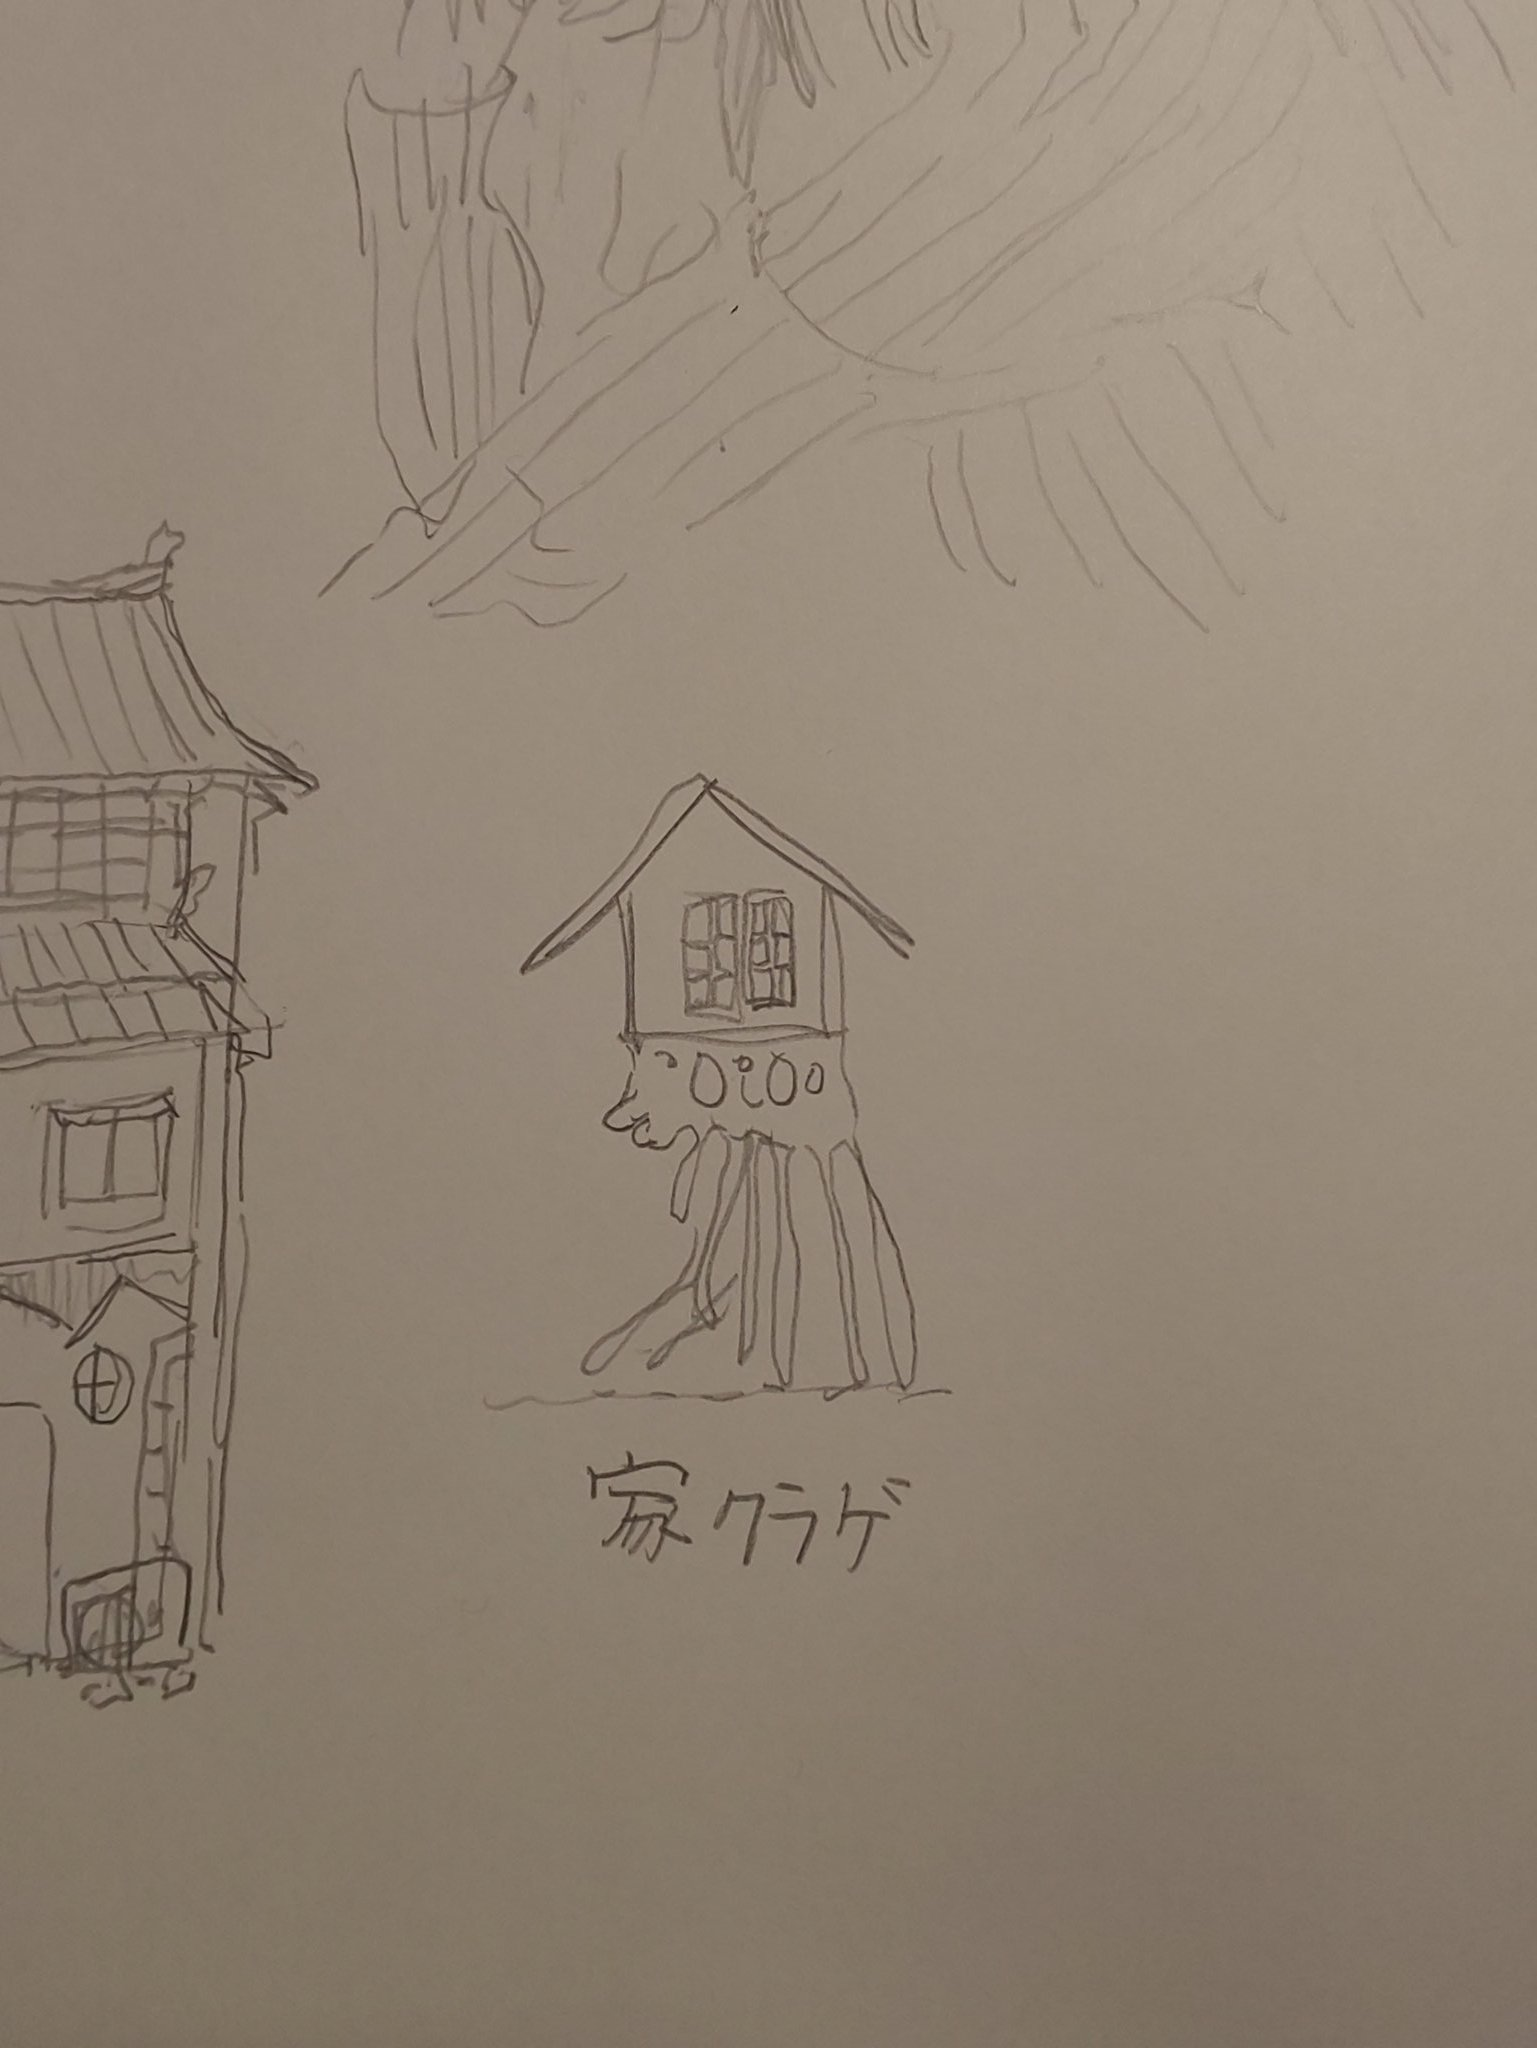 家クラゲ